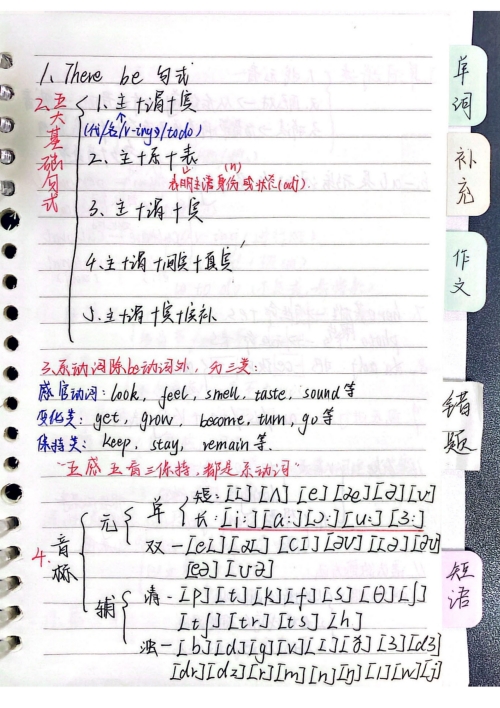 1. There be 句式
2. 五大基础句式
1. 主+谓+宾
(代/名/v-ing/to do)
2. 主+系+表
表明主语身份(n)或状态(adj)
3. 主+谓+宾
4. 主+谓+间宾+直宾
5. 主+谓+宾+宾补
3. 系动词除be动词外, 分三类:
感官动词: look, feel, smell, taste, sound等
变化类: get, grow, become, turn, go等
保持类: keep, stay, remain等.
"五感五变三保持, 都是系动词"
4. 音标
元
单
短: [I] [ʌ] [e] [æ] [ə] [ʊ]
长: [i:] [a:] [ɔ:] [u:] [ɜ:]
双 - [eI] [aI] [ɔI] [əʊ] [Iə] [aʊ]
[eə] [ʊə]
辅
清 - [p] [t] [k] [f] [s] [θ] [ʃ]
[tʃ] [tr] [ts] [h]
浊 - [b] [d] [g] [v] [z] [ð] [ʒ] [dʒ]
[dr] [dz] [r] [m] [n] [ŋ] [l] [w] [j]
单词
补充
作文
错题
短语